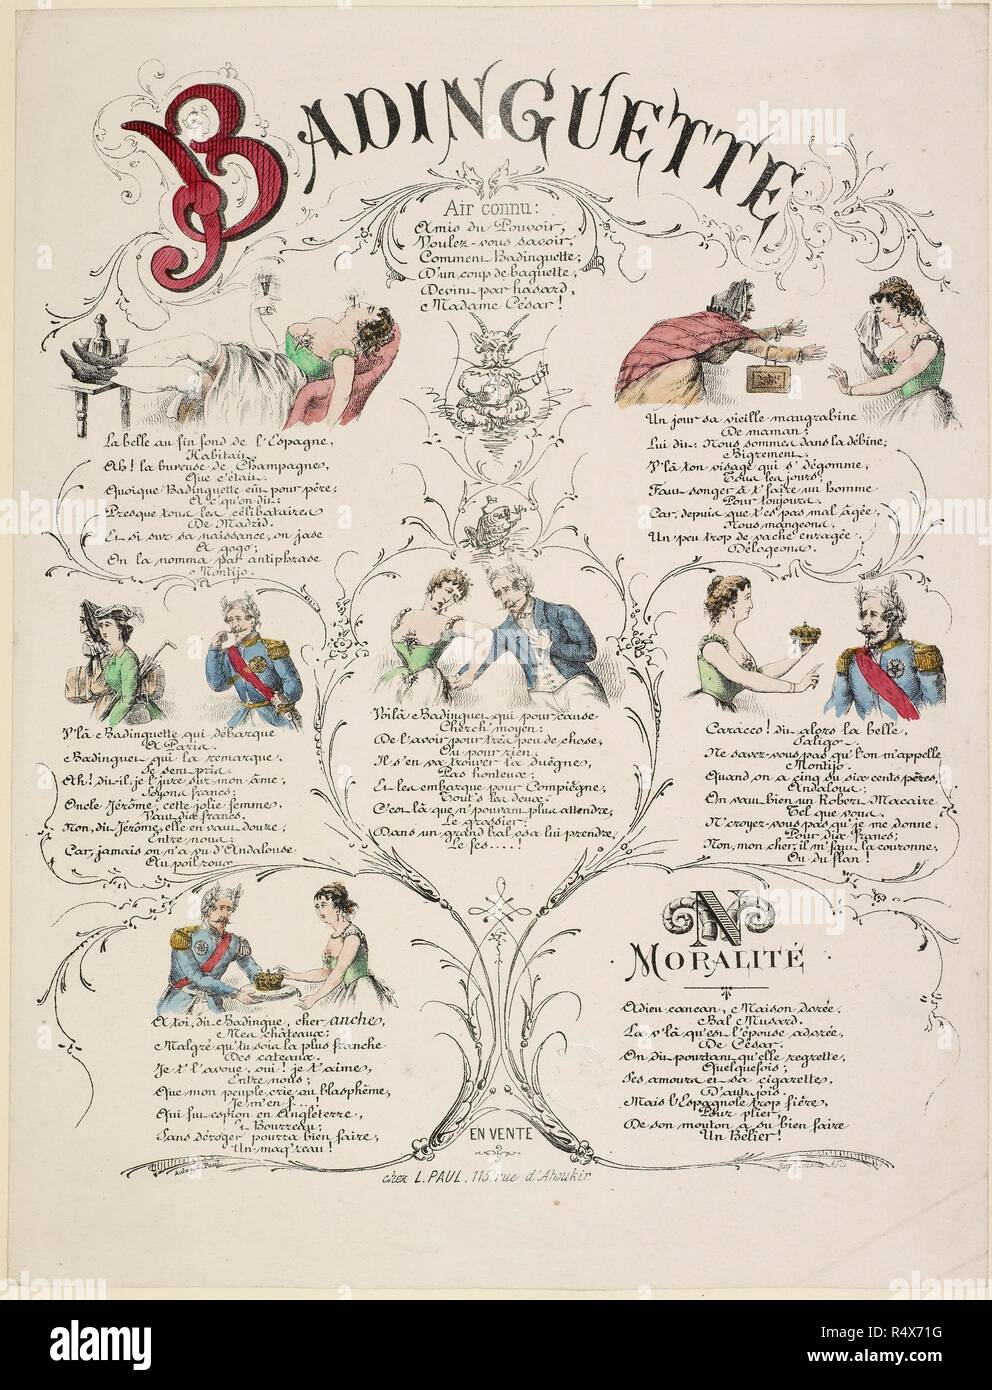 BADINGUETTE
Air connu:
Amis du Pouvoir,
Voulez-vous savoir,
Comment Badinguette,
D'un coup de baguette,
Devint par hasard,
Madame César!
La belle au fin fond de l'Espagne,
Habitait
Ah! la buveuse de Champagne,
Que c'était.
Quoique Badinguette eût pour père,
A c'qu'on dit:
Presque tous les célibataires
De Madrid.
Et si sur sa naissance, on jase
A gogo;
On la nomma par antiphrase
Montijo.
Un jour sa vieille maugrabine
De maman;
Lui dit: Nous sommes dans la débine;
Bigrement.
V'là ton visage qui s'dégomme,
Tous les jours;
Faut songer à t'faire un homme
Pour toujours.
Car, depuis que t'es pas mal âgée,
Nous mangeons,
Un peu trop de vache enragée.
Délogeons.
V'là Badinguette qui débarque
A Paris.
Badinguet qui la remarque,
Se sent pris.
Ah! dit-il, je l'jure sur mon âme,
Soyons francs;
Oncle Jérôme, cette jolie femme,
Vaut dix francs.
Non, dit Jérôme, elle en vaut douze,
Entre nous,
Car, jamais on n'a vu d'Andalouse
Au poil roux
Voilà Badinguet qui pour cause
Cherch' moyen:
De l'avoir pour très peu de chose,
Ou pour rien;
Il s'en va trouver la duègne,
Pas honteux;
Et les embarque pour Compiègne,
Tout's les deux.
C'est là que n'pouvant plus attendre,
Le grossier;
Dans un grand bal osa lui prendre,
Le fes....!
Caracco! dit alors la belle,
Saligo
Ne savez-vous pas qu'l'on m'appelle
Montijo.
Quand on a cinq ou six cents pères,
Andalous;
On vaut bien un Robert Macaire
Tel que vous.
N'croyez-vous pas qu'je me donne,
Pour dix francs;
Non, mon cher, il m'faut la couronne,
Ou du flan!
A toi, dit Badingue, cher anche,
Mes châteaux;
Malgré qu'tu sois la plus franche
Des cateaux.
Je t'l'avoue, oui! je t'aime,
Entre nous;
Que mon peuple crie au blasphème,
Je m'en f...!
Qui fut espion en Angleterre,
Bourreau;
Sans déroger pourra bien faire,
Un maq'reau!
N
MORALITÉ
Adieu cancan, Maison dorée,
Bal Musard.
La v'là qu'est l'épouse adorée,
De César.
On dit pourtant qu'elle regrette,
Quelquefois;
Ses amours et sa cigarette,
D'autrefois.
Mais l'Espagnole trop fière,
Pour plier,
De son mouton a su bien faire
Un Bélier!
EN VENTE
chez L. PAUL, 115, rue d'Aboukir
alamy
Image ID: R4X71G
www.alamy.com